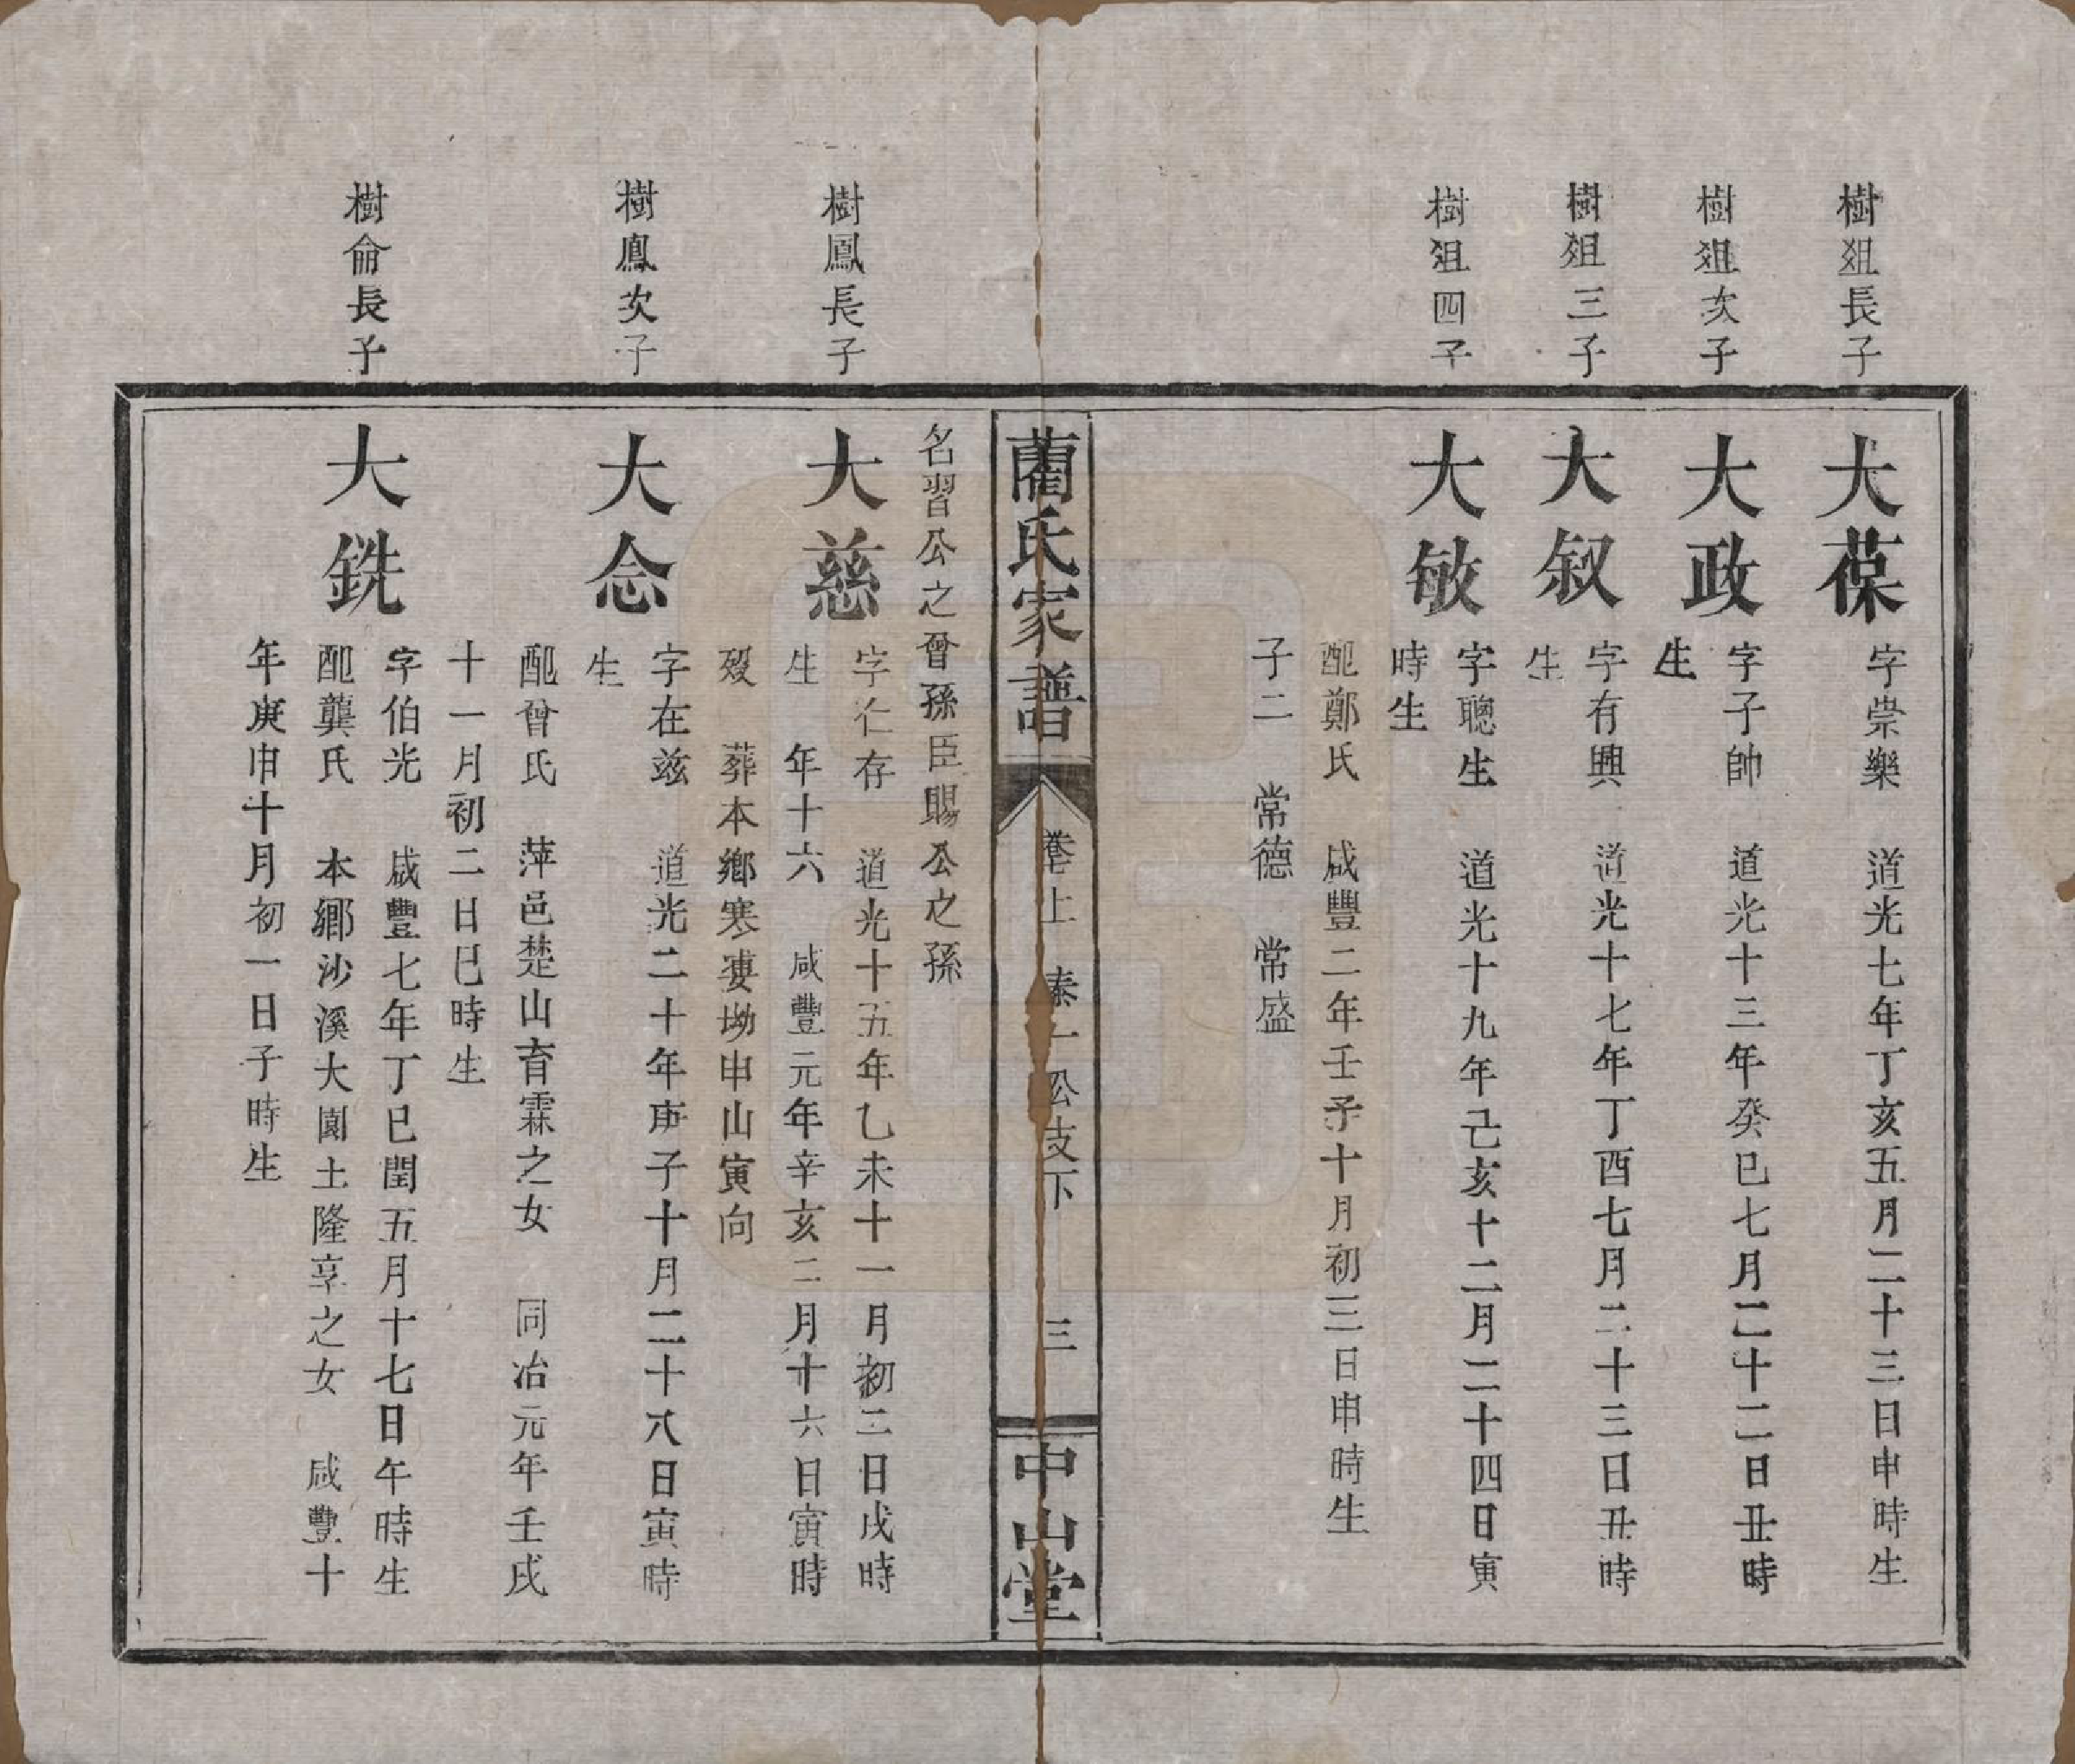 樹狙長子
大葆
字崇樂　道光七年丁亥五月二十三日申時生
樹狙次子
大政
字子帥　道光十三年癸巳七月二十二日丑時
生
樹狙三子
大叙
字有興　道光十七年丁酉七月二十三日丑時
生
樹狙四子
大敏
字聰生　道光十九年己亥十二月二十四日寅
時生
配鄭氏　咸豐二年壬子十月初三日申時生
子二　常德　常盛
藺氏家譜　卷上　秦一公支下　三　中山堂
名習公之曾孫臣賜公之孫
樹鳳長子
大慈
字仁存　道光十五年乙未十一月初二日戌時
生　年十六　咸豐元年辛亥二月十六日寅時
歿　葬本鄉寒婁坳申山寅向
樹鳳次子
大念
字在茲　道光二十年庚子十月二十八日寅時
生
配曾氏　萍邑楚山育霖之女　同治元年壬戌
十一月初二日巳時生
樹侖長子
大銑
字伯光　咸豐七年丁巳閏五月十七日午時生
配龔氏　本鄉沙溪大園土隆享之女　咸豐十
年庚申十月初一日子時生